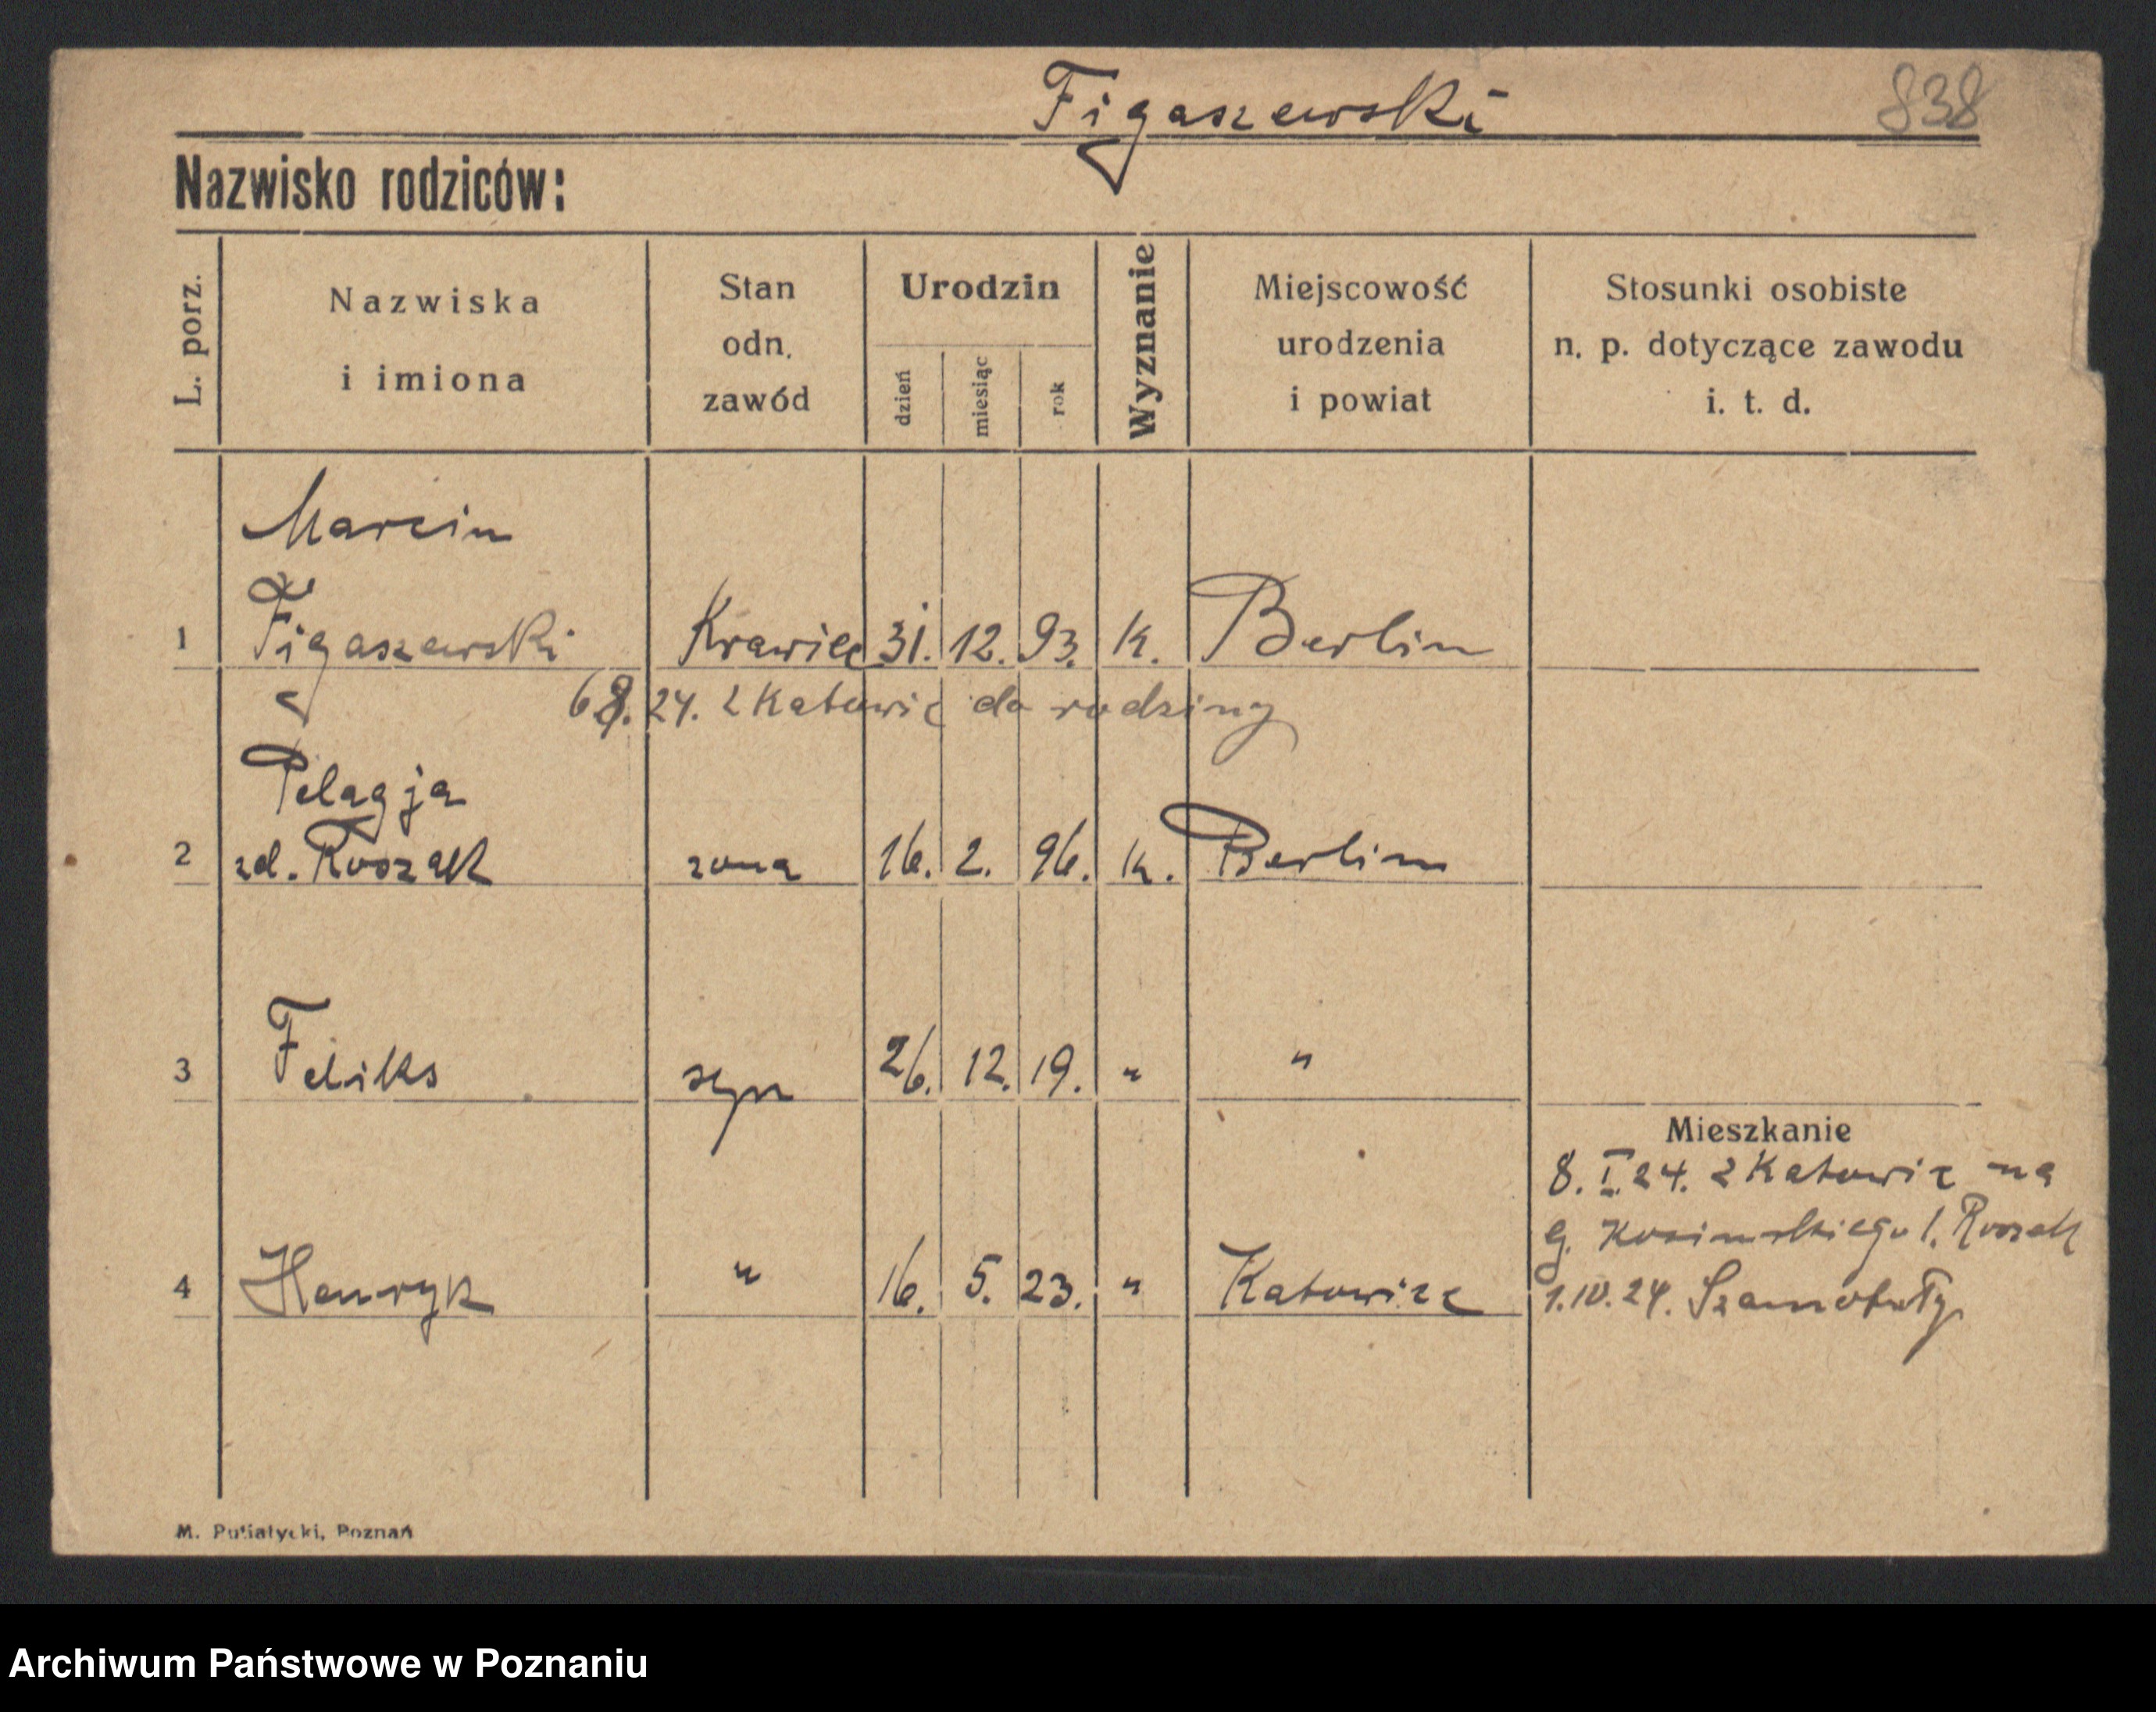 Figaszewski 838
Nazwisko rodziców:
L. porz.
Nazwiska
i imiona
Stan
odn.
zawód
Urodzin
dzień
miesiąc
rok
Wyznanie
Miejscowość
urodzenia
i powiat
Stosunki osobiste
n. p. dotyczące zawodu
i. t. d.
Marcin
1 Figaszewski Krawiec 31. 12. 93. k. Berlin
24. z Katowic do rodziny
Pelagja
2 zd. Roszak zona 16. 2. 96. k. Berlin
3 Feliks syn 26. 12. 19. " "
4 Henryk " 16. 5. 23. " Katowice
Mieszkanie
8. I. 24. z Katowic na
g. Kosinskiego 1. Roszak
1.IV.24. Szamotuły
M. Putiatycki, Poznań
Archiwum Państwowe w Poznaniu